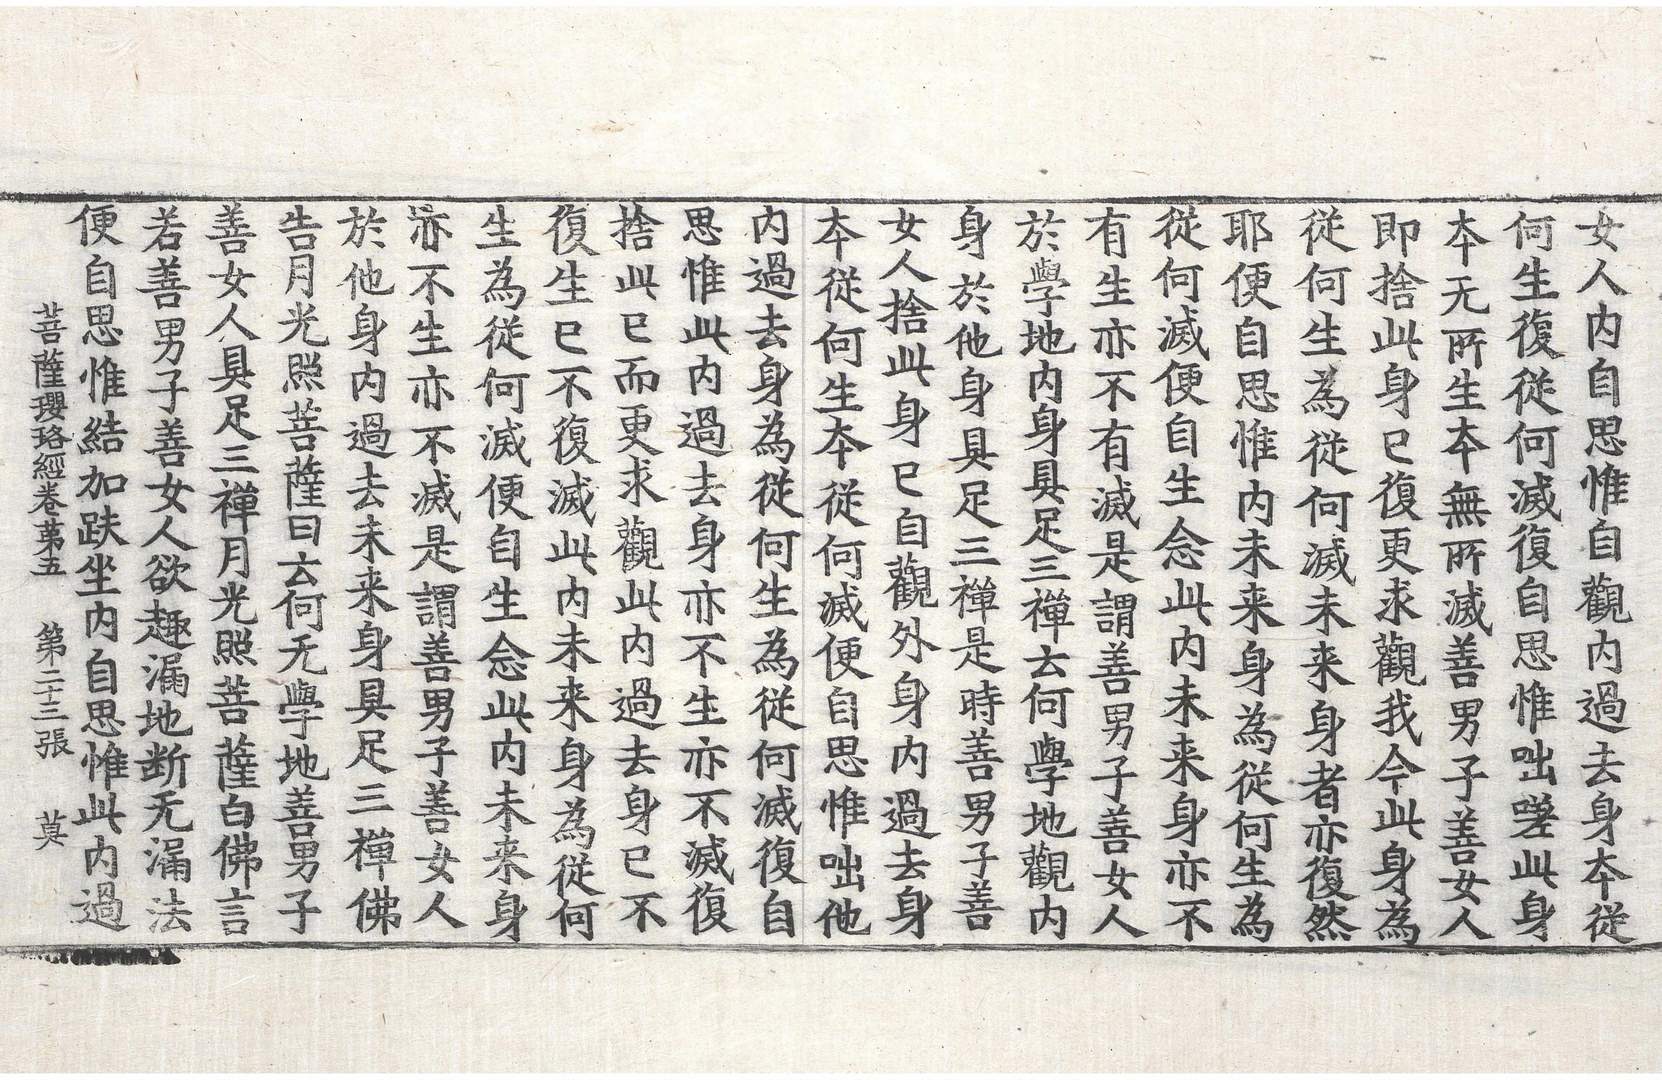 女人内自思惟自觀内過去身夲從
何生復從何滅復自思惟咄嗟此身
夲无所生夲無所滅善男子善女人
即捨此身已復更求觀我今此身為
從何生為從何滅未来身者亦復然
耶便自思惟内未来身為從何生為
從何滅便自生念此内未来身亦不
有生亦不有滅是謂善男子善女人
於學地内身具足三禪云何學地觀内
身於他身具足三禪是時善男子善
女人捨此身已自觀外身内過去身
夲從何生夲從何滅便自思惟咄他
内過去身為從何生為從何滅復自
思惟此内過去身亦不生亦不滅復
捨此已而更求觀此内過去身已不
復生已不復滅此内未来身為從何
生為從何滅便自生念此内未来身
亦不生亦不滅是謂善男子善女人
於他身内過去未来身具足三禪佛
告月光照菩薩曰云何无學地善男子
善女人具足三禪月光照菩薩白佛言
若善男子善女人欲趣漏地断无漏法
便自思惟結加趺坐内自思惟此内過
菩薩瓔珞經卷苐五 第二十三張 莫